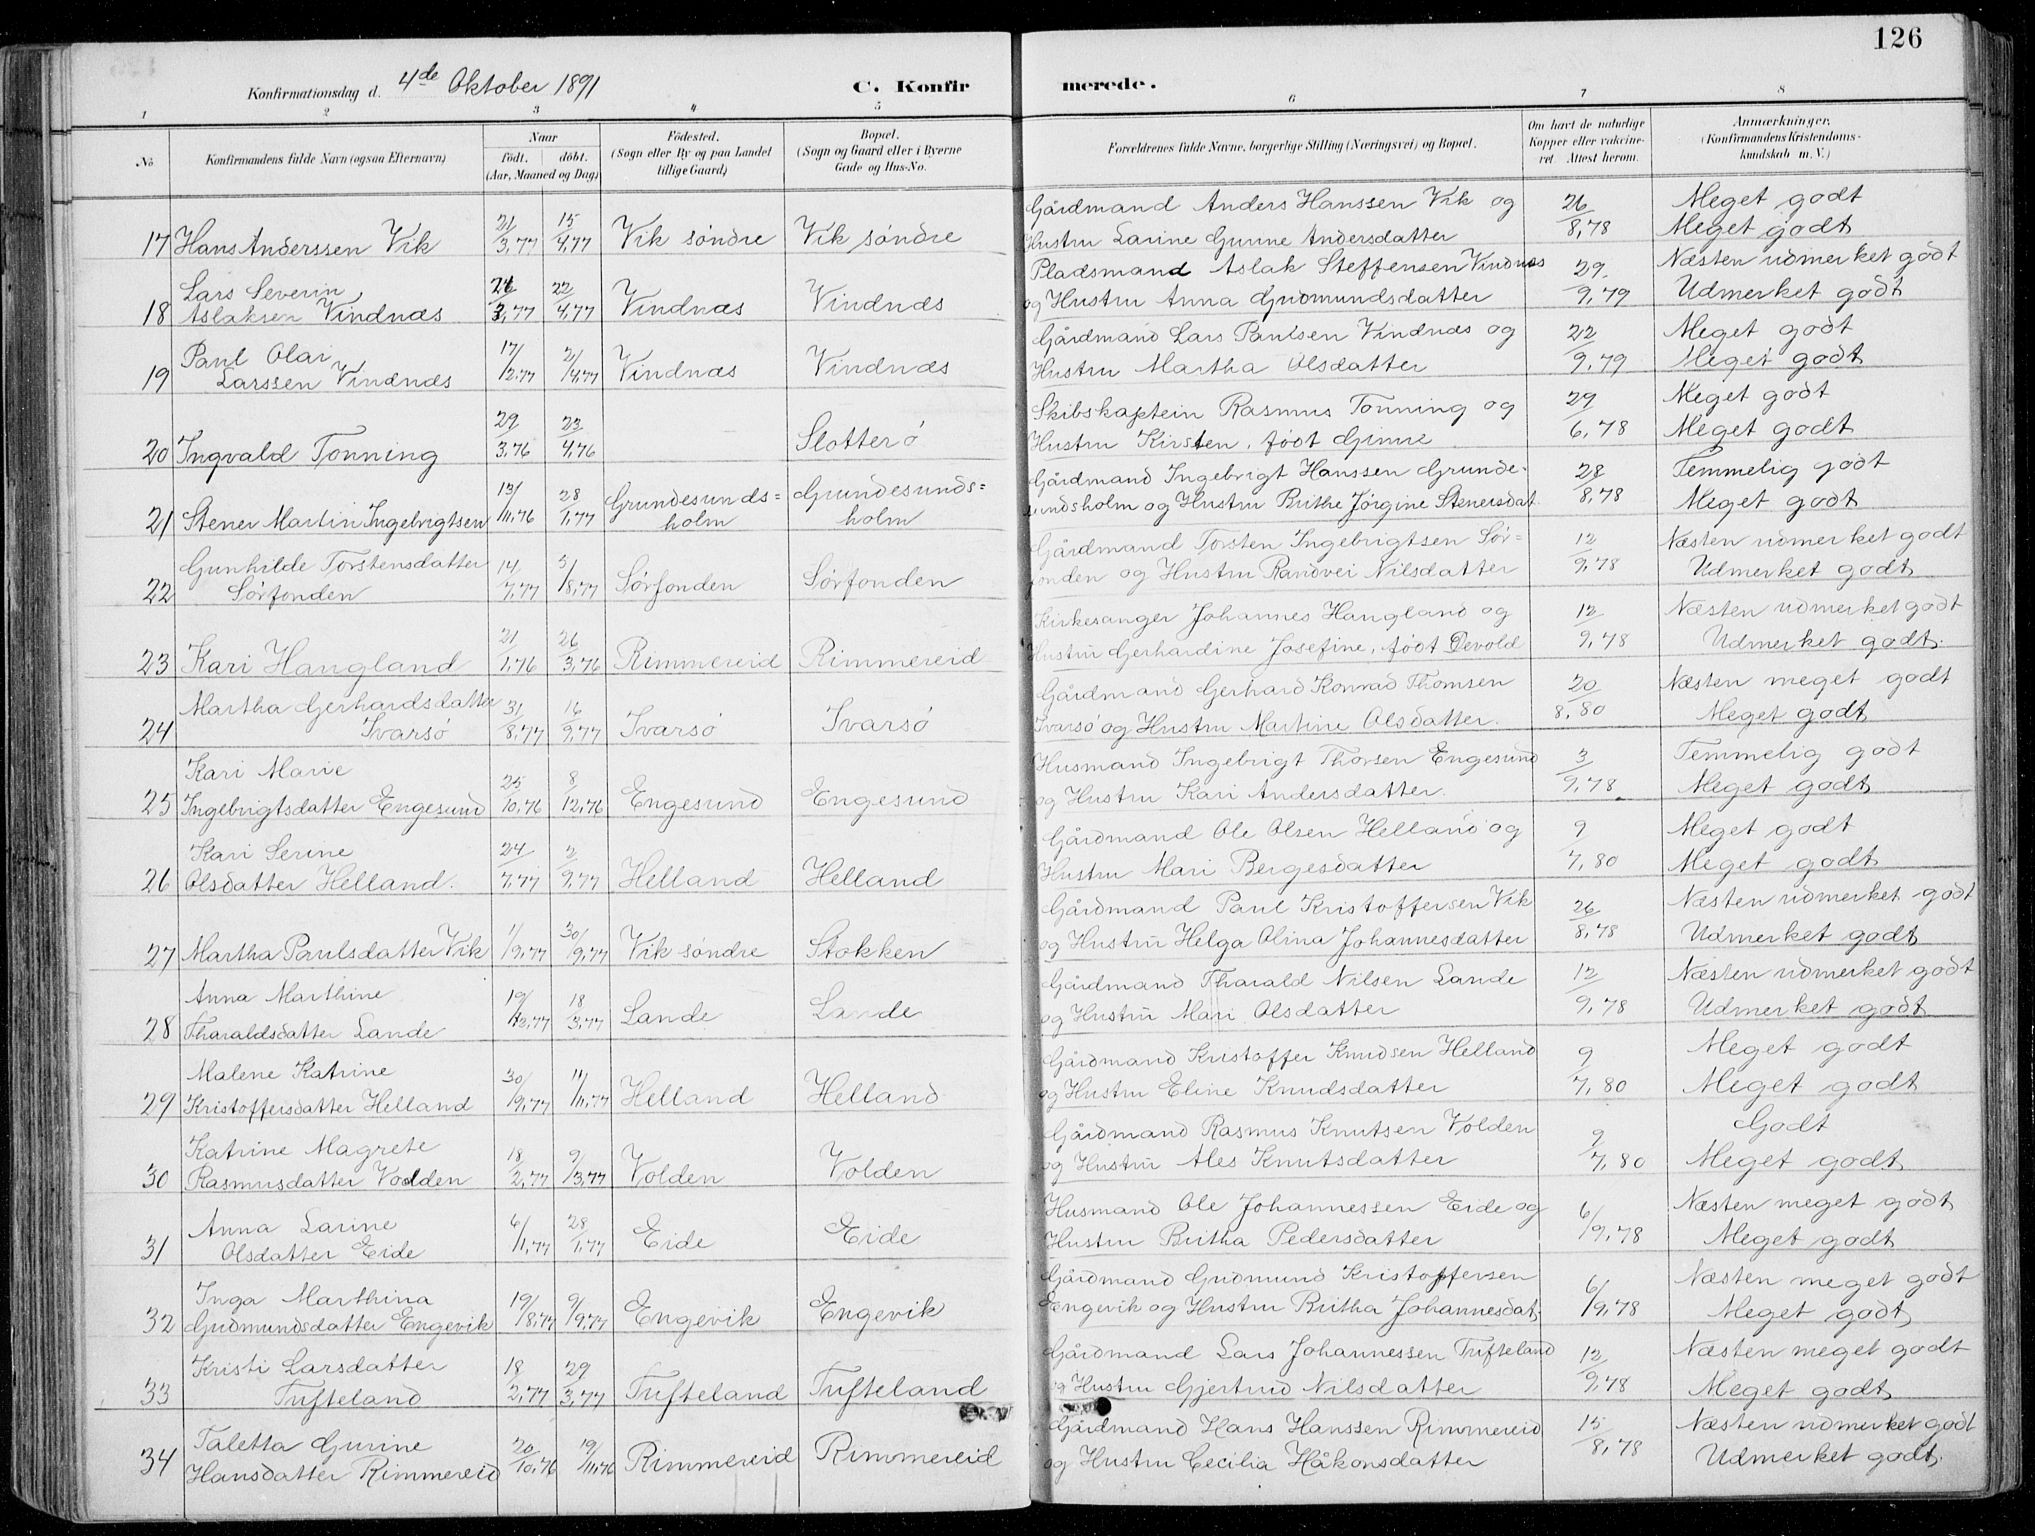 126
Konfirmationsdag d. 4de Oktober 1891
C. Konfirmerede.
1 2 3 4 5 6 7 8
No
Konfirmandens fulde Navn (ogsaa Efternavn)
Naar
født. døbt.
(Aar, Maaned og Dag)
Fødested.
(Sogn eller By og paa Landet
tillige Gaard)
Bopæl.
(Sogn og Gaard eller i Byerne
Gade og Hus-No.
Forældrenes fulde Navne, borgerlige Stilling (Næringsvei) og Bopæl.
Om havt de naturlige
Kopper eller vaccine-
ret. Attest herom.
Anmærkninger.
(Konfirmandens Kristendoms-
kundskab m. V.)
17 Hans Anderssen Vik 21/3,77 15/4,77 Vik søndre Vik søndre
Gårdmand Anders Hanssen Vik og 26/8,78 Meget godt
Hustru Larine Gurine Andersdatter Meget godt
18 Lars Severin
Aslaksen Vindnæs 22/4,77 Vindnæs Vindnæs
Pladsmand Aslak Steffensen Vindnæs 29/9,79 Næsten udmerket godt
og Hustru Anna Gudmundsdatter Udmerket godt
19 Paul Olai
Larssen Vindnæs 17/2,77 2/4,77 Vindnæs Vindnæs
Gårdmand Lars Paulsen Vindnæs og 22/9,79 Meget godt
Hustru Martha Olsdatter Meget godt
20 Ingvald Tonning 29/3,76 23/4,76 Slotterø
Skibskaptein Rasmus Tonning og 29/6,78 Meget godt
Hustru Kirsten, født Meget godt
21 Stener Martin Ingebrigtsen 13/11,76 28/1,77 Grundesunds=
holm Grundesunds=
holm
Gårdmand Ingebrigt Hanssen Grunde- 28/8,78 Temmelig godt
sundsholm og Hustru Brithe Jørgine Stenersdat. Meget godt
22 Gunhilde Torstensdatter
Sørfonden 14/7,77 5/8,77 Sørfonden Sørfonden
Gårdmand Torsten Ingebrigtsen Sør= 12/9,78 Næsten udmerket godt
fonden og Hustru Randvei Nilsdatter Udmerket godt
23 Kari Haugland 21/1,76 26/3,76 Rimmereid Rimmereid
Kirkesanger Johannes Haugland og 12/9,78 Næsten udmerket godt
Hustru Gerhardine Josefine, født Devold Udmerket godt.
24 Martha Gerhardsdatter
Ivarsø 31/8,77 16/9,77 Ivarsø Ivarsø
Gårdmand Gerhard Konrad Thomsen 20/8,80 Næsten meget godt
Ivarsø og Hustru Martine Olsdatter. Meget godt
25 Kari Marie
Ingebrigtsdatter Engesund 25/10,76 8/12,76 Engesund Engesund
Husmand Ingebrigt Thorsen Engesund 3/9,78. Temmelig godt
og Hustru Kari Andersdatter. Meget godt
26 Kari Serine
Olsdatter Helland. 24/7,77 2/9,77 Helland Helland
Gårdmand Ole Olsen Helland og 9/7,80 Meget godt
Hustru Mari Bergesdatter Meget godt
27 Martha Paulsdatter Vik 1/9,77 30/9,77 Vik søndre Stokken
Gårdmand Paul Kristoffersen Vik 26/8,78 Næsten udmerket godt
og Hustru Helga Olina Johannesdatter Udmerket godt
28 Anna Marthine
Tharaldsdatter Lande 18/3,77 Lande Lande
Gårdmand Tharald Nilsen Lande 12/9,78 Næsten udmerket godt
og Hustru Mari Olsdatter Udmerket godt
29 Malene Katrine
Kristoffersdatter Helland 30/9,77 11/11,77 Helland Helland
Gårdmand Kristoffer Knudsen Helland 9/7,80 Meget godt
og Hustru Eline Knudsdatter Meget godt
30 Katrine Magrete
Rasmusdatter Volden 18/2,77 9/3,77 Volden Volden
Gårdmand Rasmus Knutsen Volden 9/7,80 Godt
og Hustru Ales Knutsdatter Meget godt
31 Anna Larine
Olsdatter Eide 6/1,77 28/1,77 Eide Eide
Husmand Ole Johannessen Eide og 6/9,78 Næsten meget godt
Hustru Britha Pedersdatter Meget godt
32 Inga Marthina
Gudmundsdatter Engevik 19/8,77 9/9,77 Engevik Engevik
Gårdmand Gudmund Kristoffersen 6/9,78 Næsten meget godt
Engevik og Hustru Britha Johannesdat. Meget godt
33 Kristi Larsdatter
Tufteland 18/2,77 29/3,77 Tufteland Tufteland
Gårdmand Lars Johannessen Tufteland 12/9,78 Næsten meget godt
og Hustru Gjertrud Nilsdatter Meget godt
34 Taletta Gurine
Hansdatter Rimmereid 20/10,76 19/11,76 Rimmereid Rimmereid
Gårdmand Hans Hanssen Rimmereid 15/8,78 Næsten udmerket godt
og Hustru Cecilia Håkonsdatter Udmerket godt.